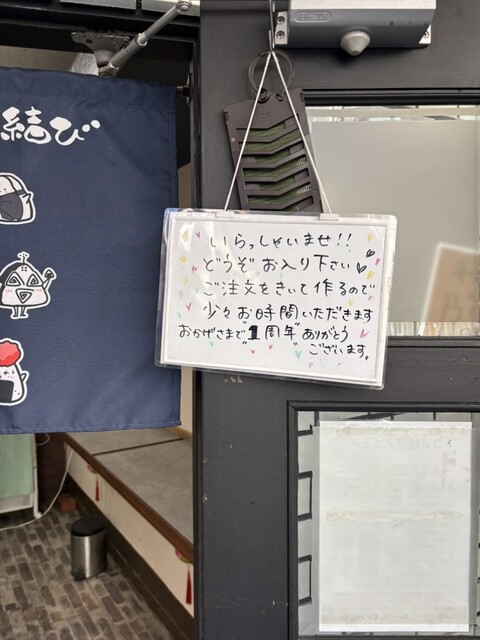 結び
いらっしゃいませ!!
どうぞお入り下さい
ご注文をきいて作るので
少々お時間いただきます
おかげさまで"1周年"ありがとう
ございます。